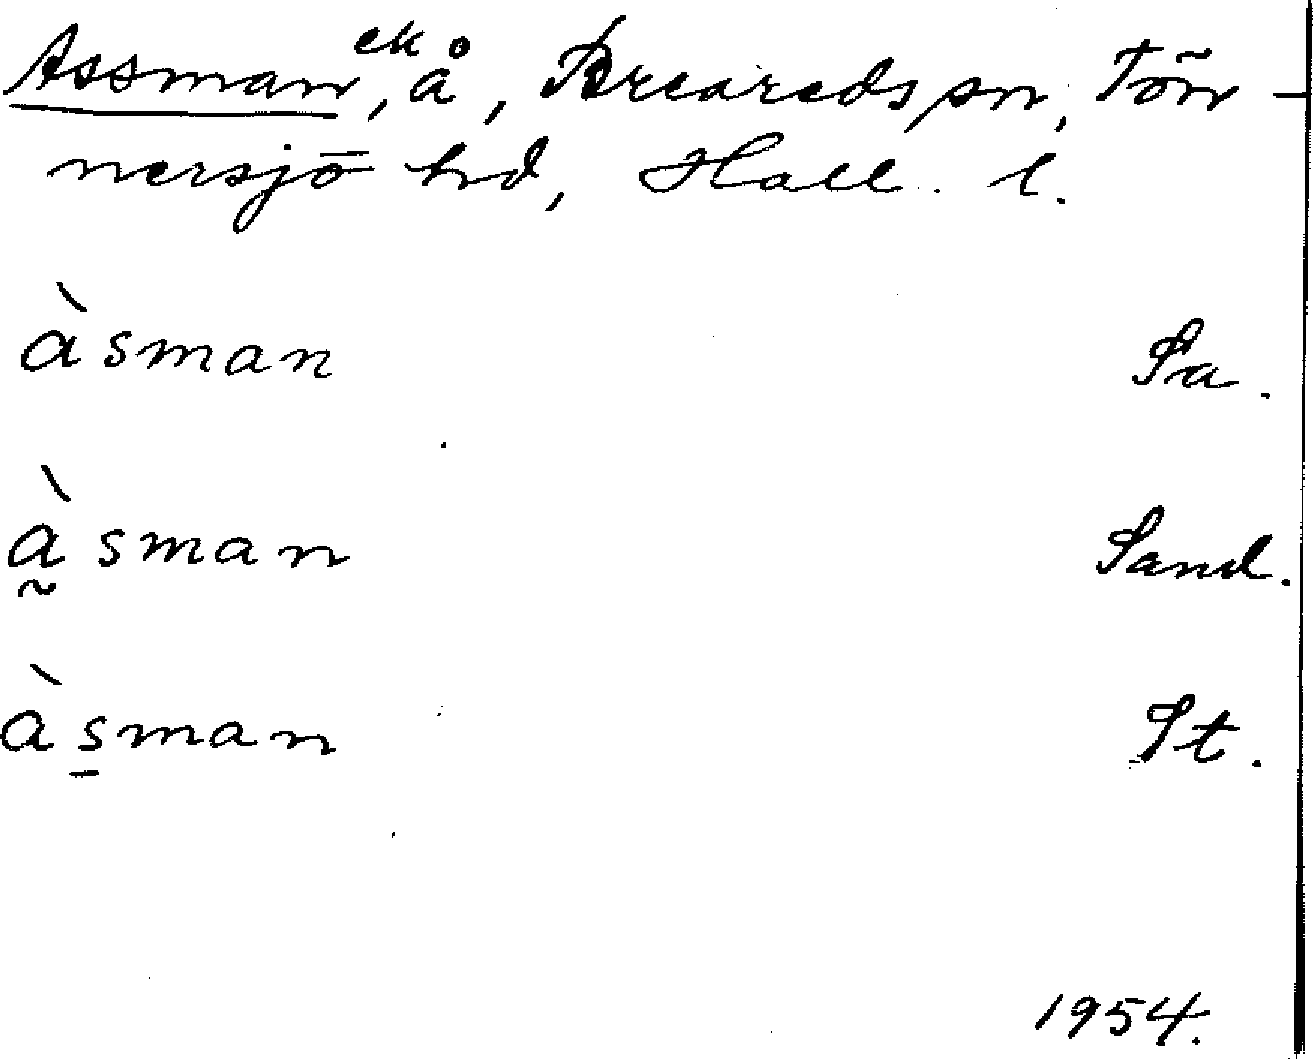 Assman, ek å, Breareds sn, Tön-
nersjö hd, Hall. l.
àsman Sa.
à̰sman Sand.
às̱man St.
1954.